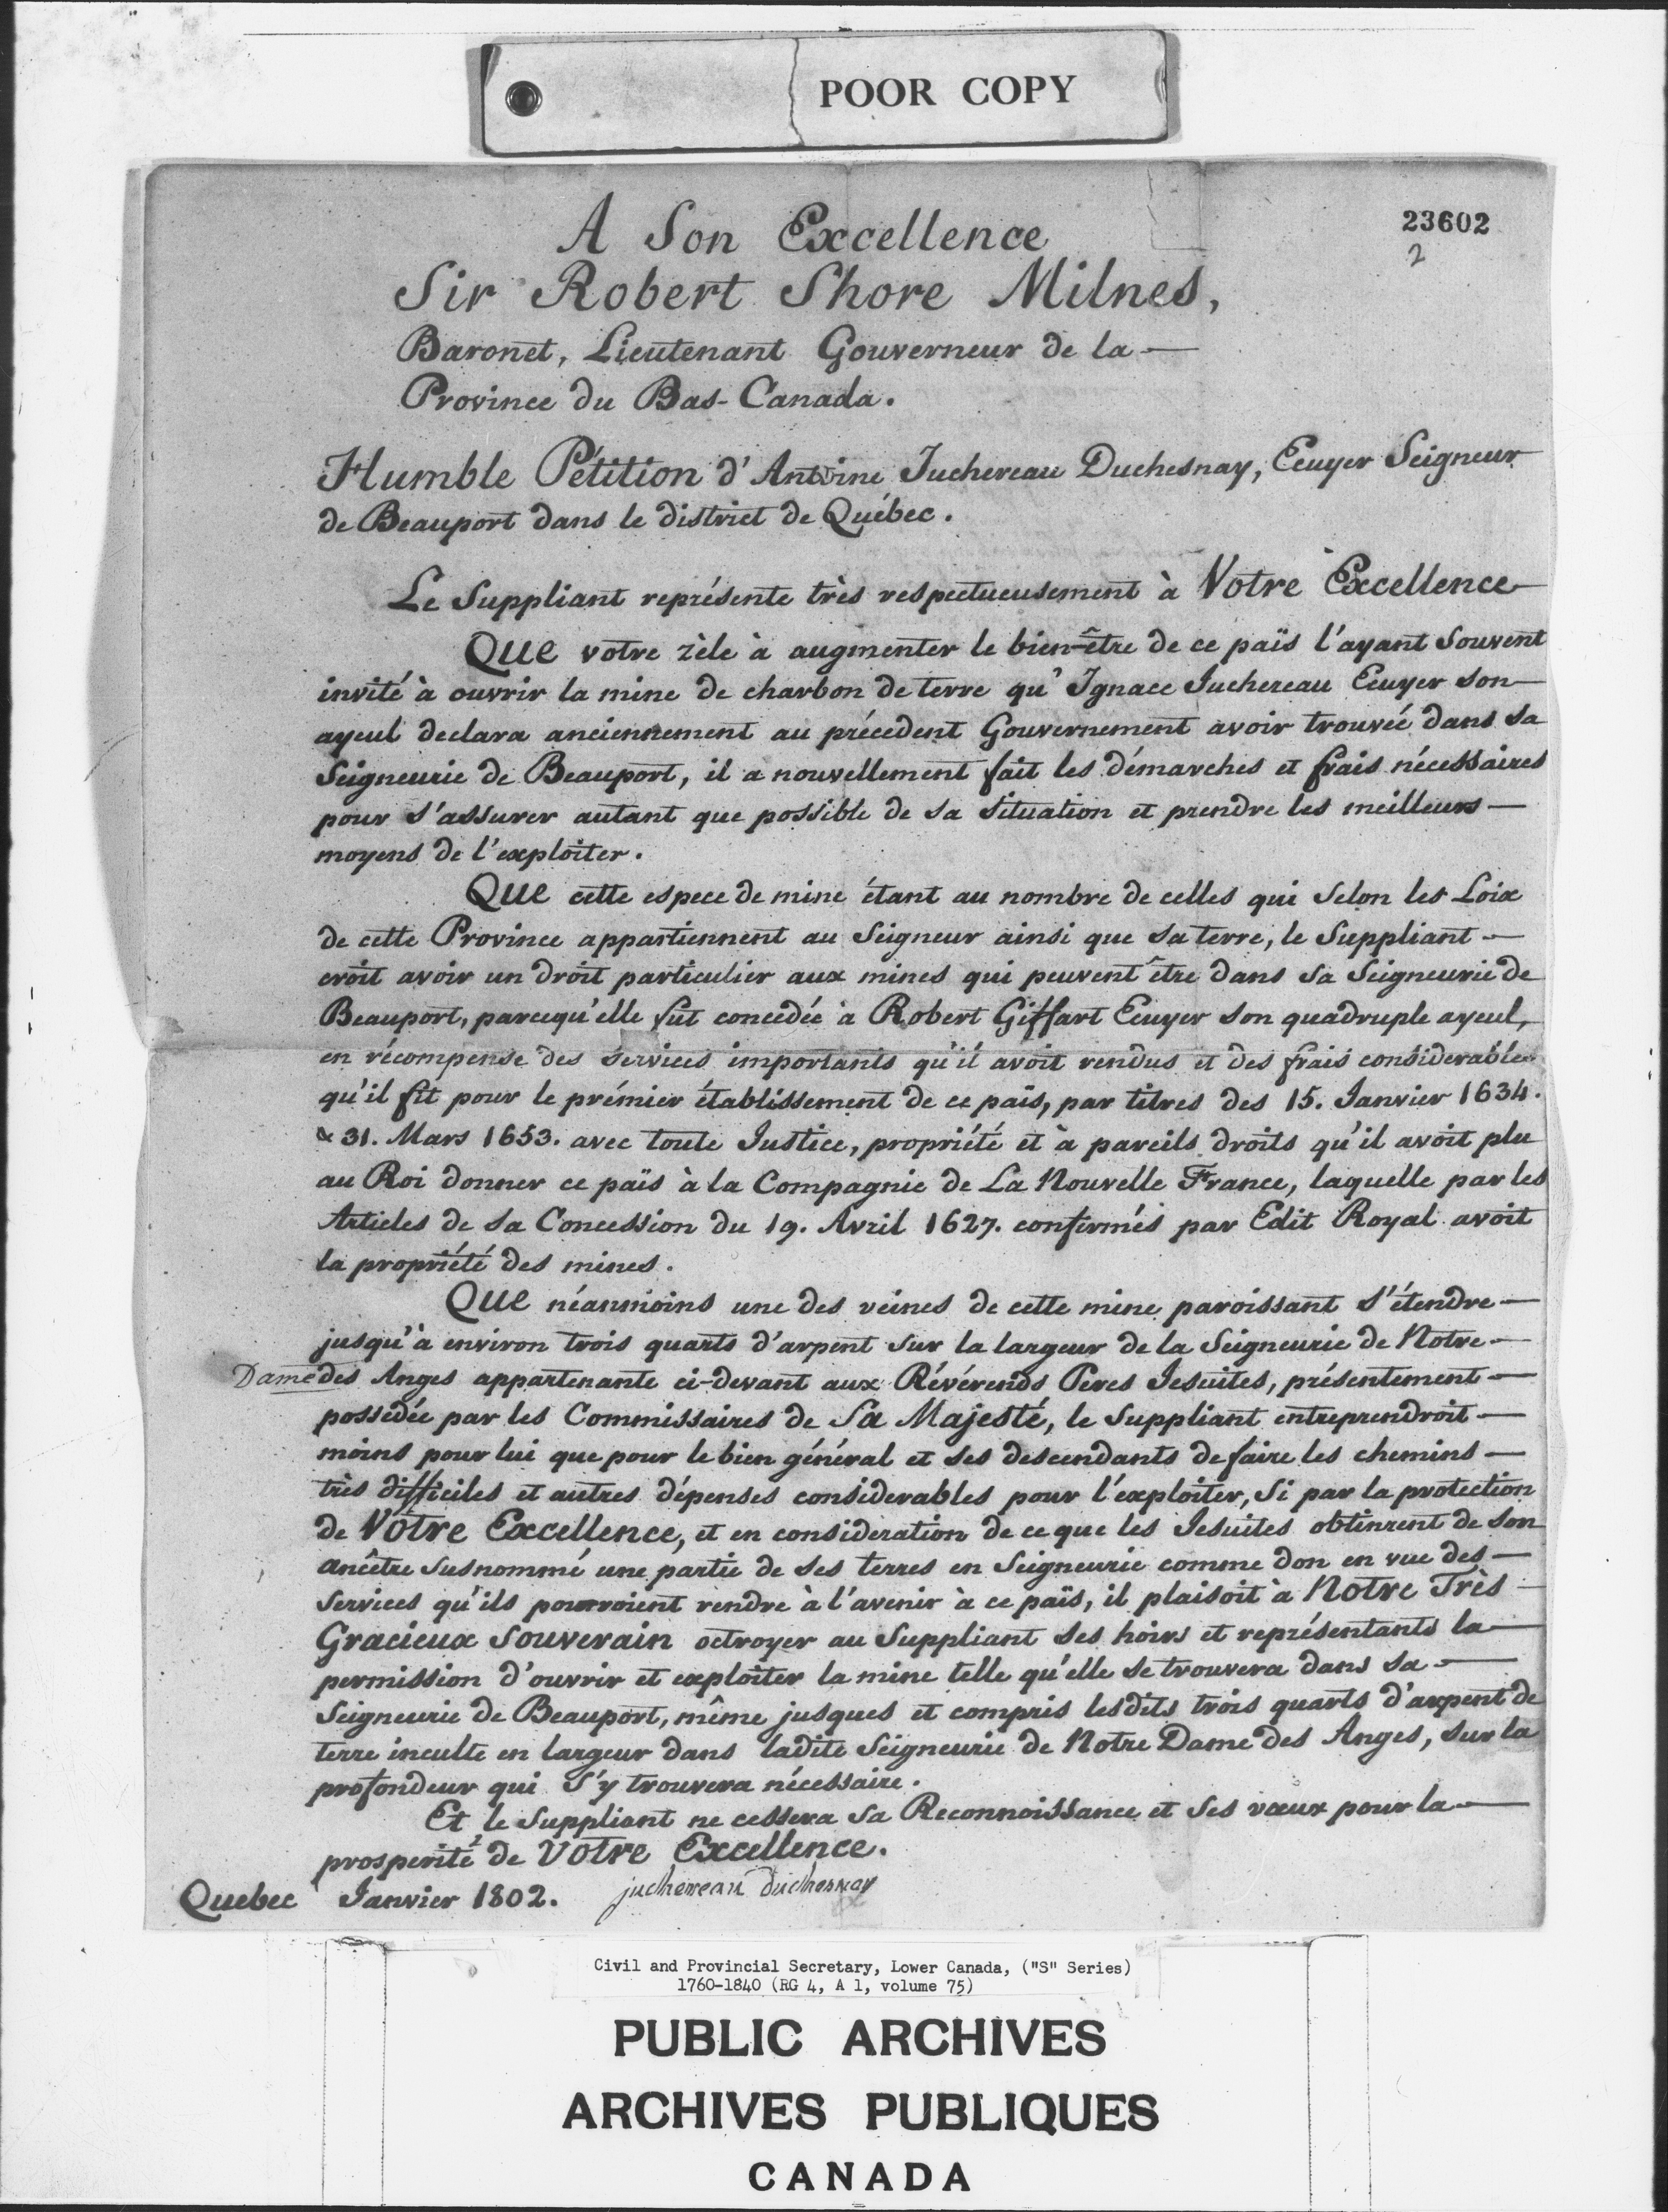 POOR COPY
23602
2
A Son Excellence
Sir Robert Shore Milnes,
Baronet, Lieutenant Gouverneur de la —
Province du Bas-Canada.
Humble Pétition d'Antoine Juchereau Duchesnay, Ecuyer Seigneur
de Beauport dans le district de Québec.
Le Suppliant représente très respectueusement à Votre Excellence
Que votre zèle à augmenter le bien-être de ce païs l'ayant souvent
invité à ouvrir la mine de charbon de terre qu'Ignace Juchereau Ecuyer son —
ayeul declara anciennement au précedent Gouvernement avoir trouvée dans sa
Seigneurie de Beauport, il a nouvellement fait les démarches et frais nécessaires
pour s'assurer autant que possible de sa situation et prendre les meilleurs —
moyens de l'exploiter.
Que cette espece de mine étant au nombre de celles qui selon les Loix
de cette Province appartiennent au Seigneur ainsi que sa terre, le Suppliant —
croit avoir un droit particulier aux mines qui peuvent être dans sa Seigneurie de
Beauport, parcequ'elle fut concédée à Robert Giffart Ecuyer son quadruple ayeul,
en récompense des services importants qu'il avoit rendus et des frais considerables
qu'il fit pour le prémier établissement de ce païs, par titres des 15. Janvier 1634.
& 31. Mars 1653. avec toute Justice, propriété et à pareils droits qu'il avoit plu
au Roi donner ce païs à la Compagnie de La Nouvelle France, laquelle par les
Articles de sa Concession du 19. Avril 1627. confirmés par Edit Royal avoit
la propriété des mines.
Que néanmoins une des veines de cette mine paroissant s'étendre —
jusqu'à environ trois quarts d'arpent sur la largeur de la Seigneurie de Notre —
Dame des Anges appartenante ci-devant aux Révérends Peres Jesuites, présentement —
possedée par les Commissaires de Sa Majesté, le Suppliant entreprendroit —
moins pour lui que pour le bien général et ses descendants de faire les chemins —
très difficiles et autres dépenses considerables pour l'exploiter, Si par la protection
de Votre Excellence, et en consideration de ce que les Jesuites obtinrent de son
ancêtre susnommé une partie de ses terres en Seigneurie comme don en vue des —
services qu'ils pourroient rendre à l'avenir à ce païs, il plaisoit à Notre Très —
Gracieux Souverain octroyer au Suppliant ses hoirs et représentants la —
permission d'ouvrir et exploiter la mine telle qu'elle se trouvera dans sa —
Seigneurie de Beauport, même jusques et compris lesdits trois quarts d'arpent de
terre inculte en largeur dans ladite Seigneurie de Notre Dame des Anges, sur la
profondeur qui s'y trouvera nécessaire.
Et le Suppliant ne cessera sa Reconnoissance et ses vœux pour la —
prosperité de Votre Excellence.
Quebec Janvier 1802. juchereau duchesnay
Civil and Provincial Secretary, Lower Canada, ("S" Series)
1760-1840 (RG 4, A 1, volume 75)
PUBLIC ARCHIVES
ARCHIVES PUBLIQUES
CANADA